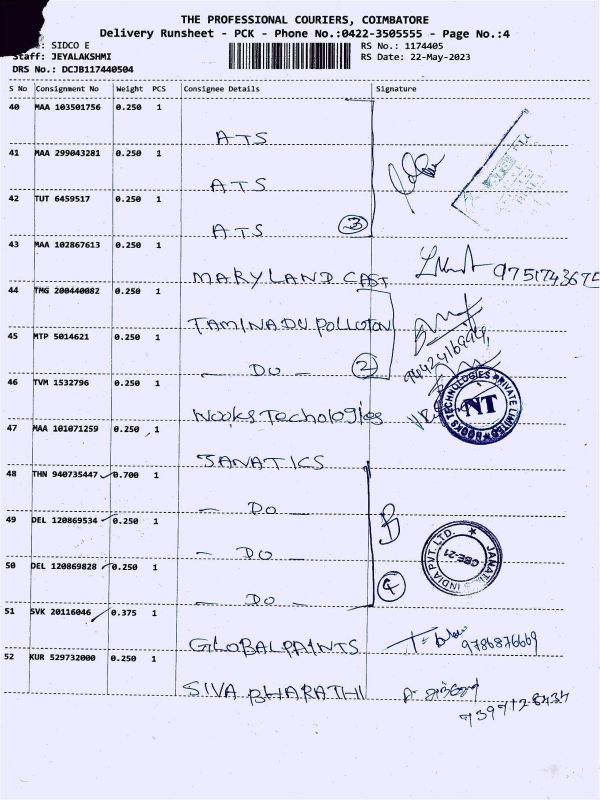 THE PROFESSIONAL COURIERS, COIMBATORE
Delivery Runsheet - PCK - Phone No.:0422-3505555 - Page No.:4
: SIDCO E
RS No.: 1174405
Staff: JEYALAKSHMI
RS Date: 22-May-2023
DRS No.: DCJB117440504
S No Consignment No Weight PCS Consignee Details Signature
40 MAA 103501756 0.250 1
ATS
41 MAA 299043281 0.250 1
ATS
42 TUT 6459517 0.250 1
ATS 3
43 MAA 102867613 0.250 1
MARYLAND CAST 9751743675
44 TMG 200440082 0.250 1
TAMINADU POLLOTON
45 MTP 5014621 0.250 1
— DO — 2
46 TVM 1532796 0.250 1
Nooks Techologies
NOOKS TECHNOLOGIES PRIVATE LIMITED
NT
47 MAA 101071259 0.250 1
JANATICS
48 THN 940735447 0.700 1
— DO —
49 DEL 120869534 0.250 1
— DO —
JANATICS INDIA PVT. LTD.
CBE-21
50 DEL 120869828 0.250 1
— DO — 4
51 SVK 20116046 0.375 1
GLOBALPAINTS 9786876669
52 KUR 529732000 0.250 1
SIVA BHARATHI